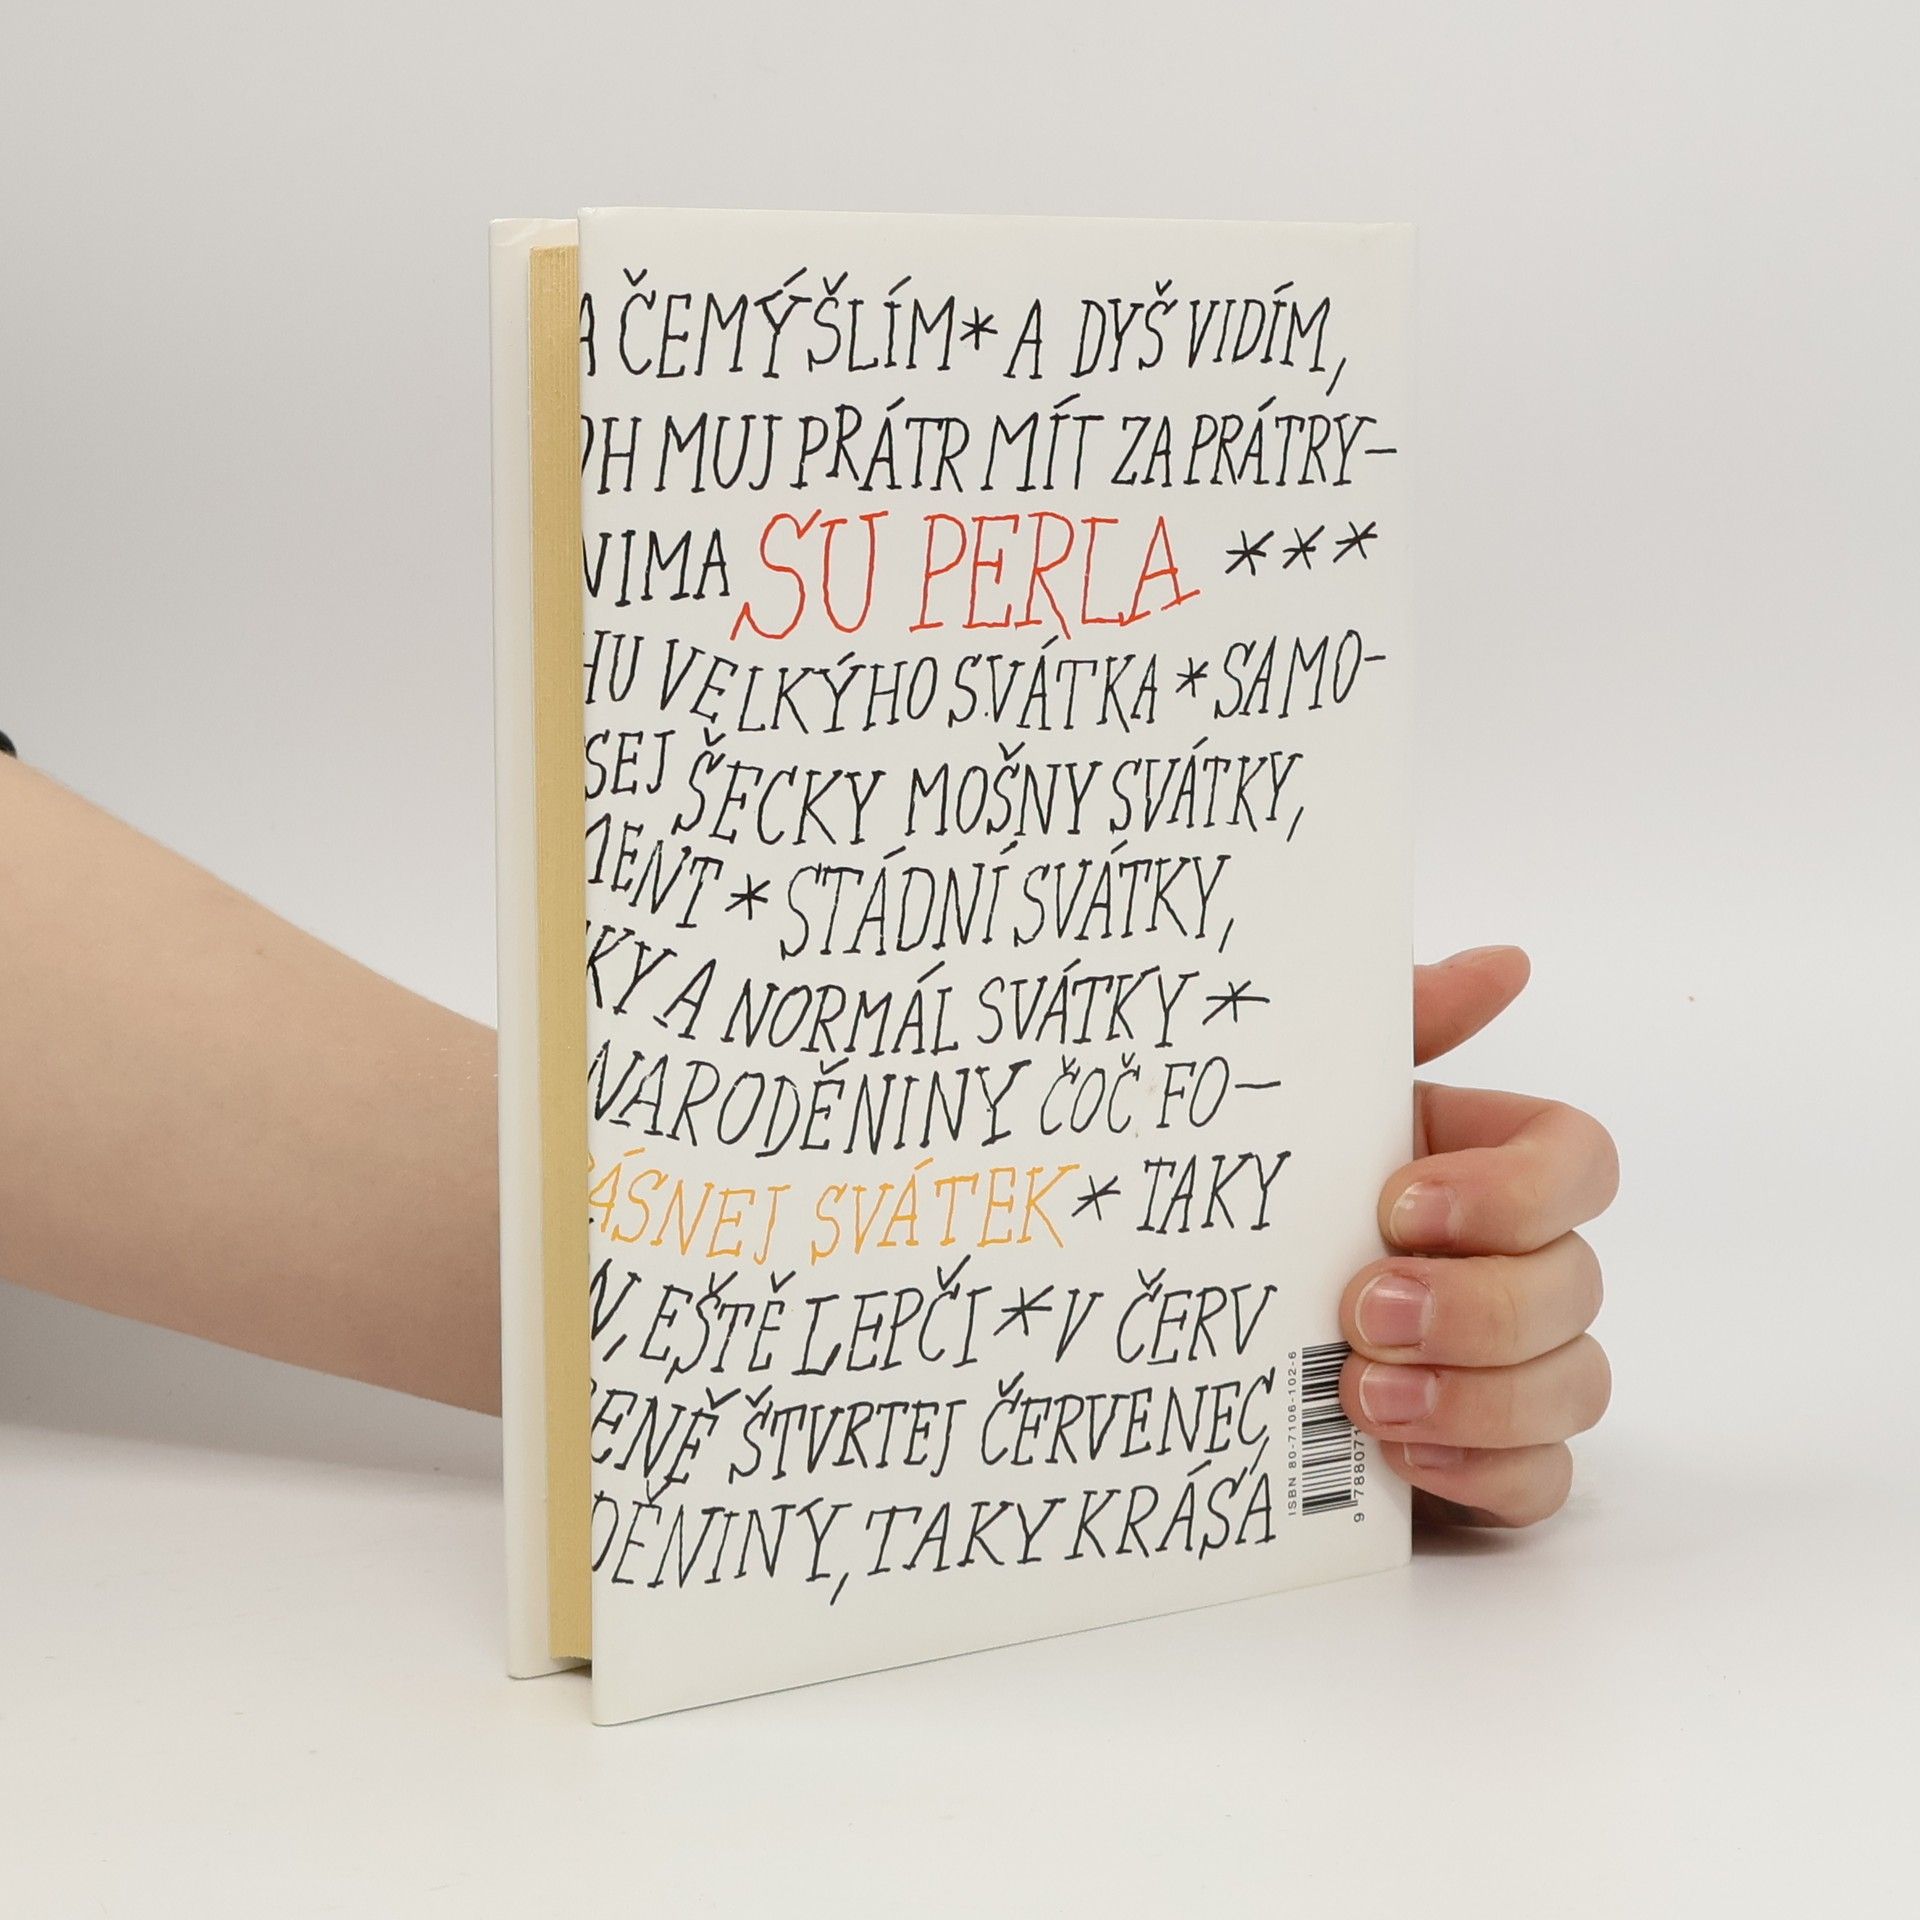 ČEMÝŠLÍM * A DYŠ VIDÍM,
MUJ PRÁTR MÍT ZA PRÁTRY-
NIMA SU PERLA ***
VELKÝHO SVÁTKA * SAMO-
SEJ ŠECKY MOŠNY SVÁTKY,
MENT * STÁDNÍ SVÁTKY,
KY A NORMÁL SVÁTKY *
NARODĚNINY ČOČ FO-
ÁSNEJ SVÁTEK * TAKY
N, EŠTĚ LEPČI * V ČERV
ENĚ ŠTVRTEJ ČERVENEC,
DĚNINY, TAKY KRÁSA
ISBN 80-7106-102-6
9 788071